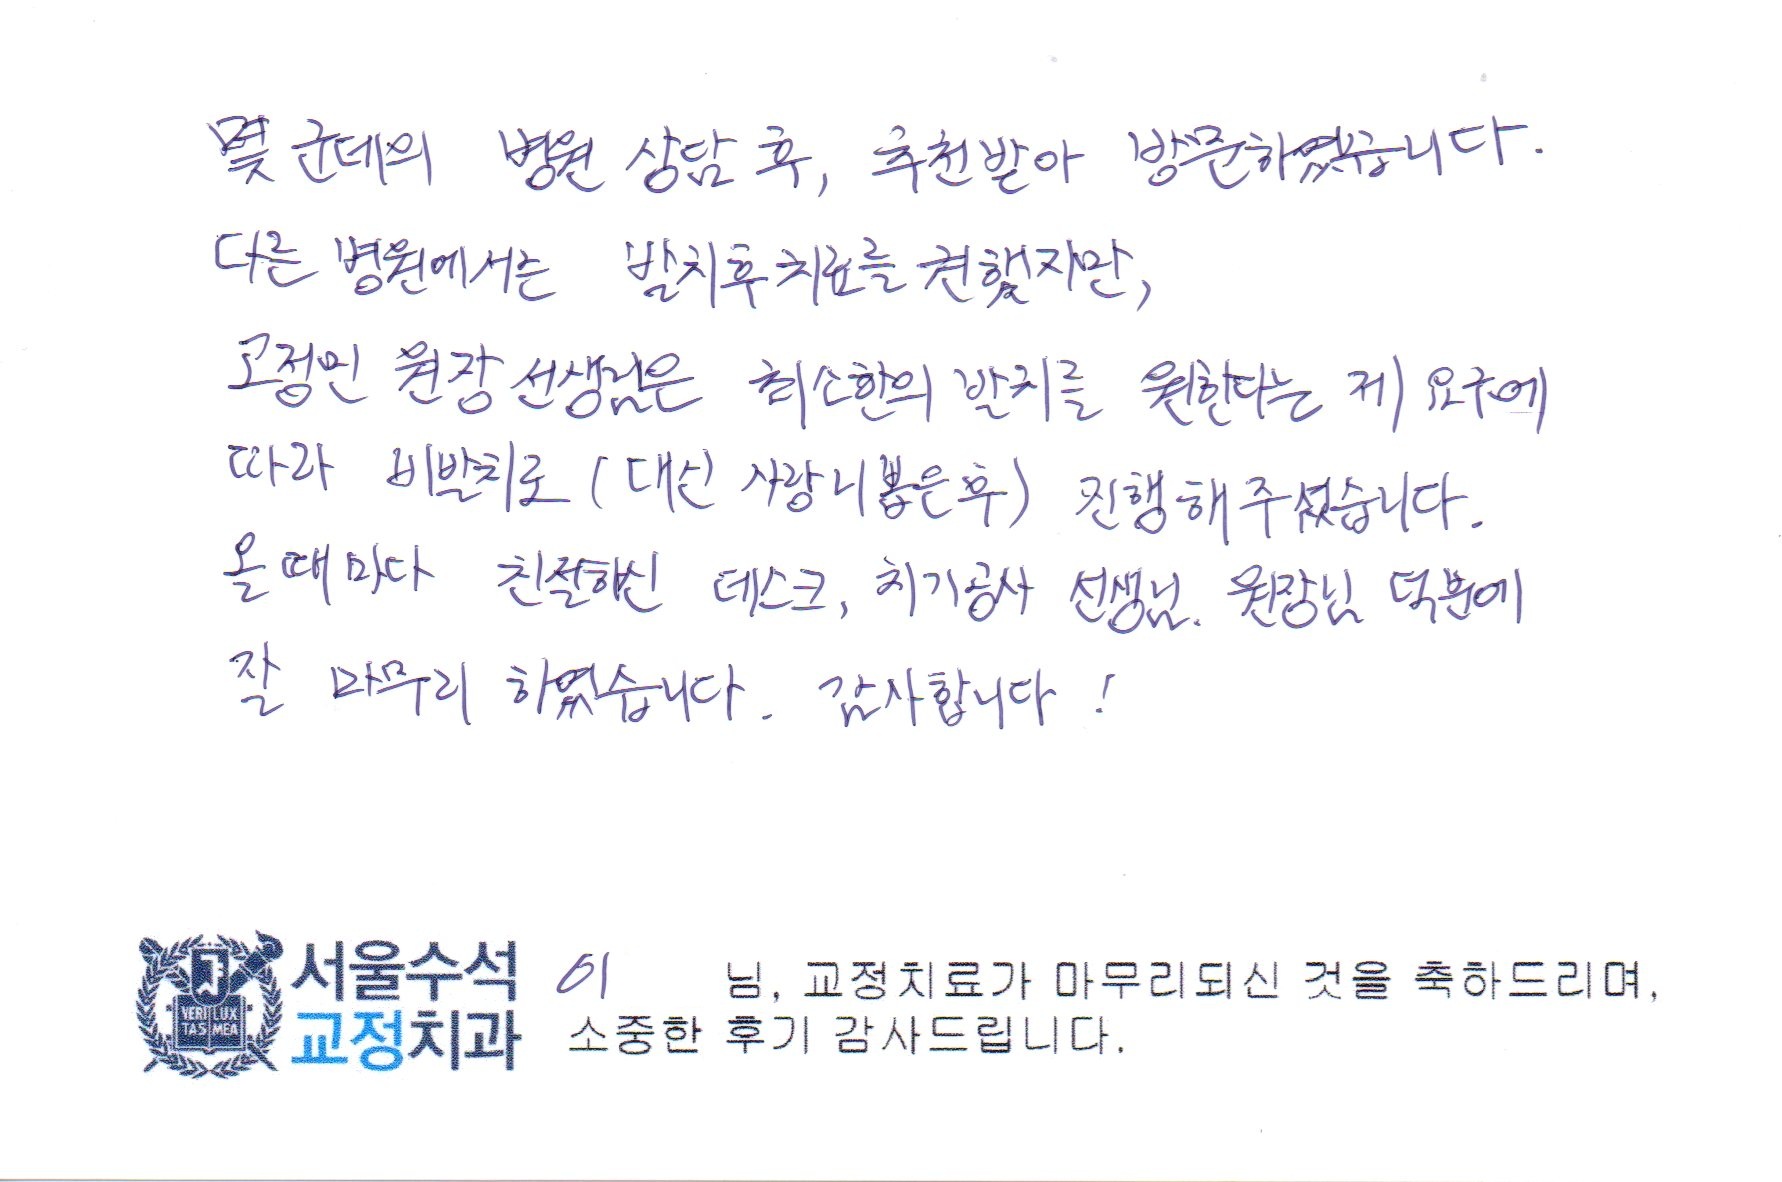 몇 군데의 병원 상담 후, 추천받아 방문하였습니다.
다른 병원에서는 발치후 치료를 권했지만,
고정민 원장 선생님은 최소한의 발치를 원한다는 제 요구에
따라 비발치로 (대신 사랑니 뽑은 후) 진행해주셨습니다.
올 때마다 친절하신 데스크, 치기공사 선생님. 원장님 덕분에
잘 마무리 하였습니다. 감사합니다!
서울수석
교정치과
VERI LUX
TAS MEA
이 님, 교정치료가 마무리되신 것을 축하드리며,
소중한 후기 감사드립니다.